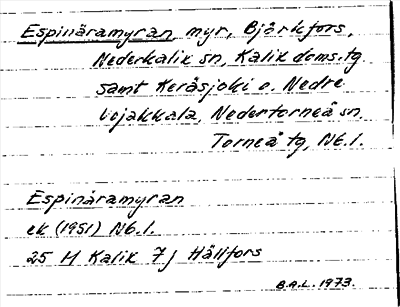 Espinäramyran myr, Björkfors,
Nederkalix sn, Kalix doms.tg
samt Keräsjoki o. Nedre
Vojakkala, Nedertorneå sn
Torneå tg, Nb.l.
Espinäramyran
ek (1951) Nb.l.
25 M Kalix 7j Hällfors
B.A.L. 1973.